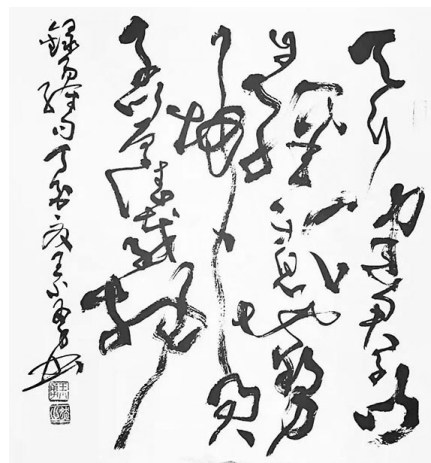 天行健君子以
自強不息地勢
坤君
子以厚德載物
録易經句